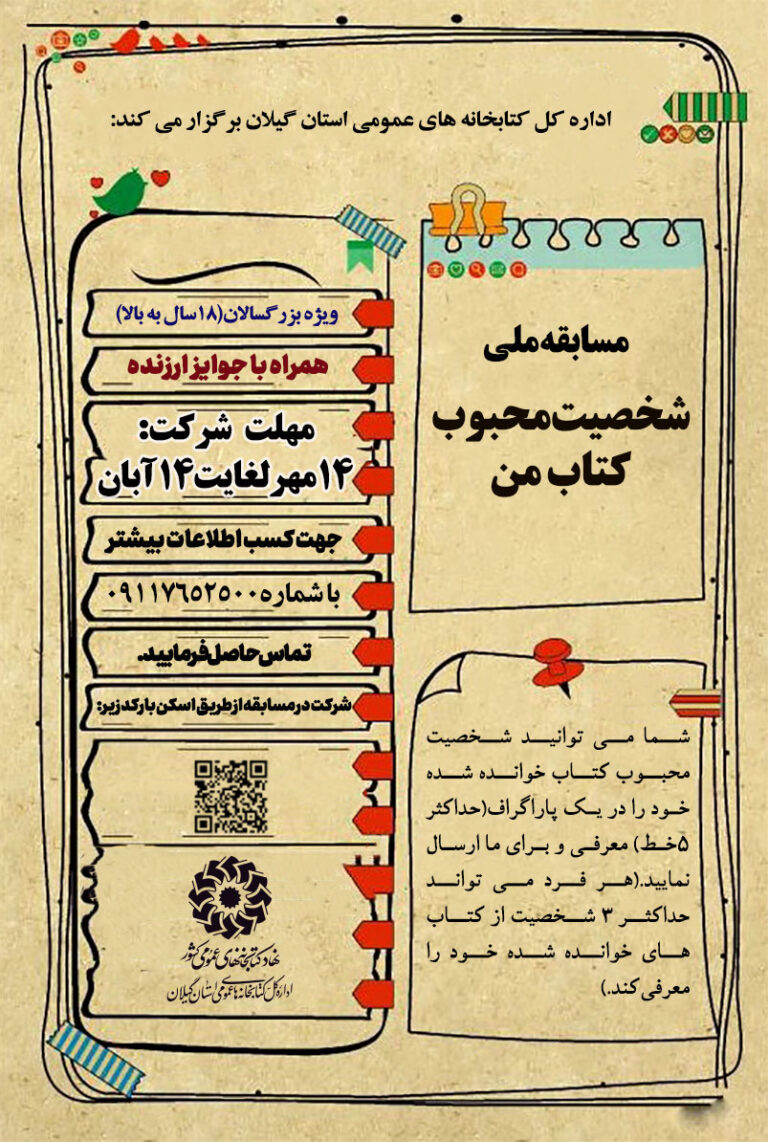 اداره کل کتابخانه های عمومی استان گیلان برگزار می کند:
مسابقه ملی
شخصیت محبوب
کتاب من
شما می توانید شخصیت
محبوب کتاب خوانده شده
خود را در یک پاراگراف(حداکثر
۵خط) معرفی و برای ما ارسال
نمایید.(هر فرد می تواند
حداکثر ۳ شخصیت از کتاب
های خوانده شده خود را
معرفی کند.)
ویژه بزرگسالان(۱۸سال به بالا)
همراه با جوایز ارزنده
مهلت شرکت:
۱۴مهر لغایت ۱۴آبان
جهت کسب اطلاعات بیشتر
با شماره ۰۹۱۱۷۶۵۲۵۰۰
تماس حاصل فرمایید.
شرکت در مسابقه از طریق اسکن بارکد زیر:
نهاد کتابخانه‌های عمومی کشور
اداره کل کتابخانه های عمومی استان گیلان